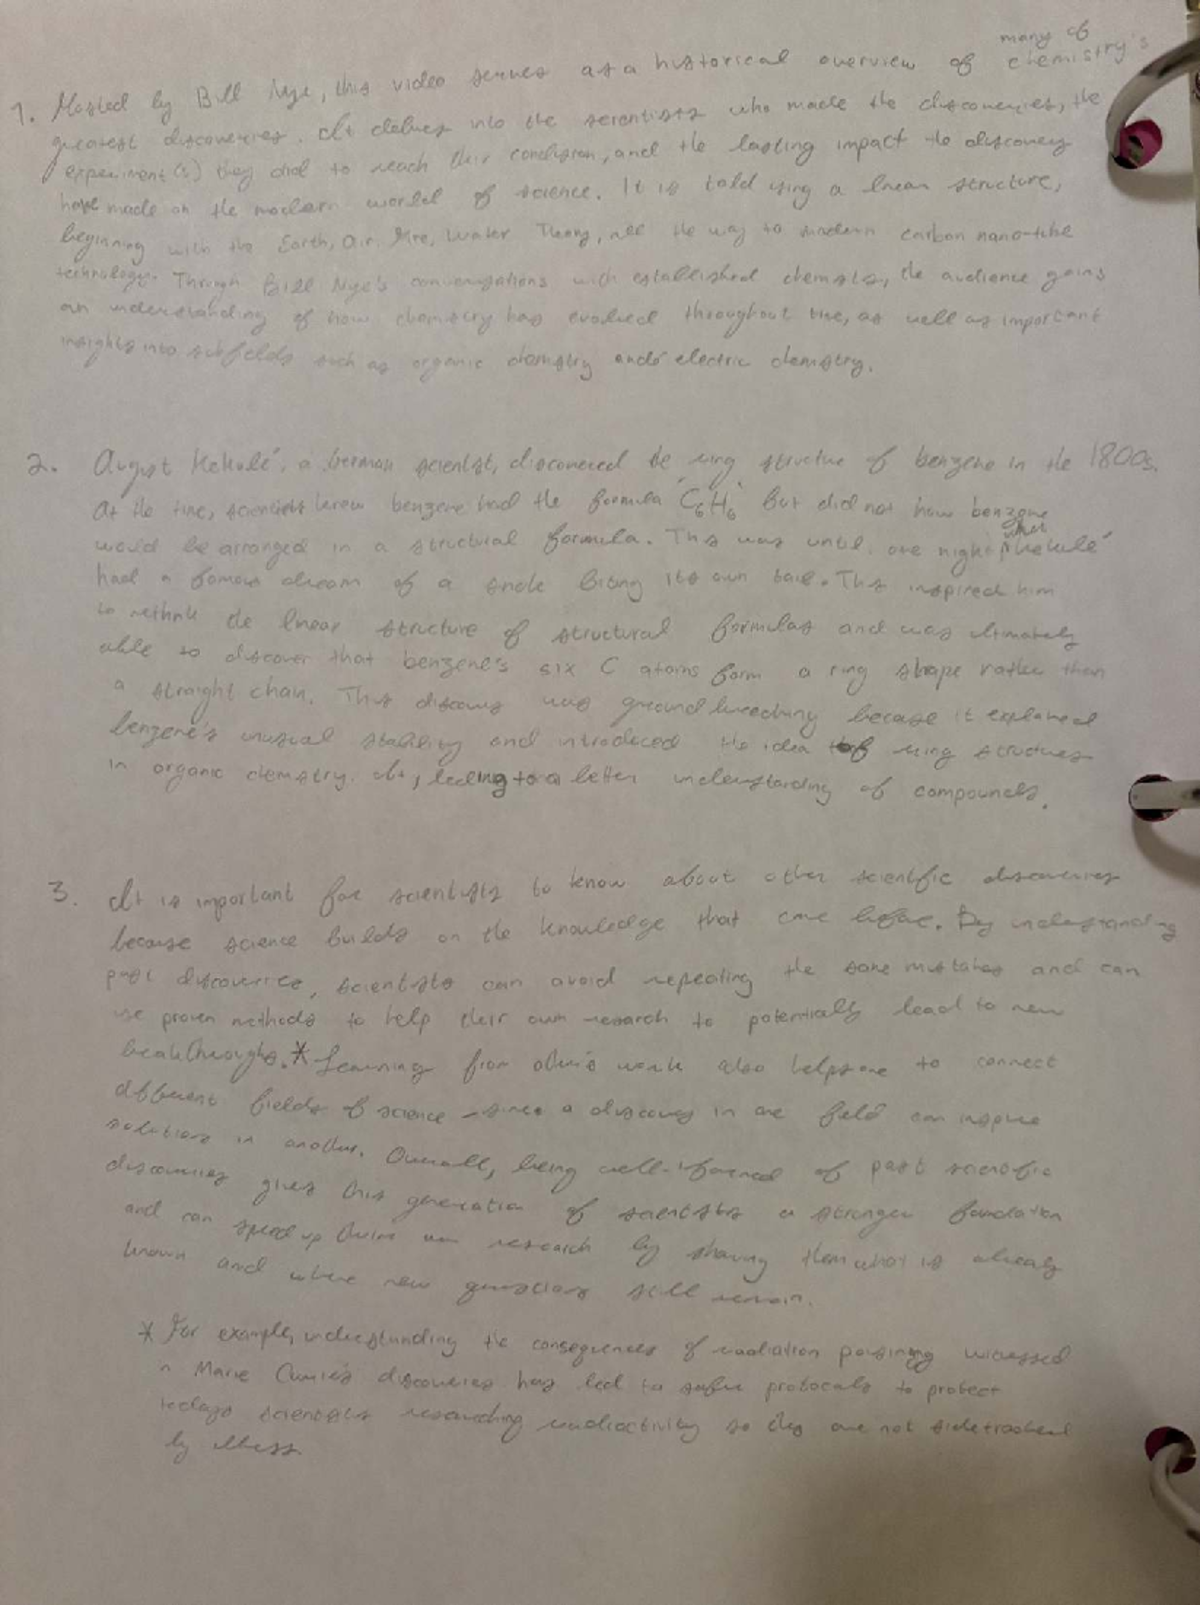 many of
1. Hosted by Bill Nye, this video serves as a historical overview of chemistry's
greatest discoveries. It delves into the scientists who made the discoveries, the
experiment(s) they did to reach their conclusion, and the lasting impact the discovery
have made on the modern world of science. It is told using a linear structure,
beginning with the Earth, Air, Fire, Water Theory, all the way to modern carbon nano-tube
technology. Through Bill Nye's conversations with established chemists, the audience gains
an understanding of how chemistry has evolved throughout time, as well as important
insights into subfields such as organic chemistry and electric chemistry.
2. August Kekulé, a German scientist, discovered the ring structure of benzene in the 1800s.
At the time, scientists knew benzene had the formula C₆H₆ but did not how benzene
would be arranged in a structural formula. This was until one night Kekulé
had a famous dream of a snake biting its own tail. This inspired him
to rethink the linear structure of structural formulas and was ultimately
able to discover that benzene's six C atoms form a ring shape rather than
a straight chain. This discovery was groundbreaking because it explained
benzene's unusual stability and introduced the idea of ring structures
in organic chemistry, leading to a better understanding of compounds.
3. It is important for scientists to know about other scientific discoveries
because science builds on the knowledge that came before. By understanding
past discoveries, scientists can avoid repeating the same mistakes and can
use proven methods to help their own research to potentially lead to new
breakthroughs.* Learning from other's work also helps one to connect
different fields of science - since a discovery in one field can inspire
solutions in another. Overall, being well-informed of past scientific
discoveries gives this generation of scientists a stronger foundation
and can speed up their own research by showing them what is already
known and where new questions still remain.
* For example, understanding the consequences of radiation poisoning witnessed
in Marie Curie's discoveries has led to safer protocols to protect
todays scientists researching radioactivity so they are not sidetracked
by illness.